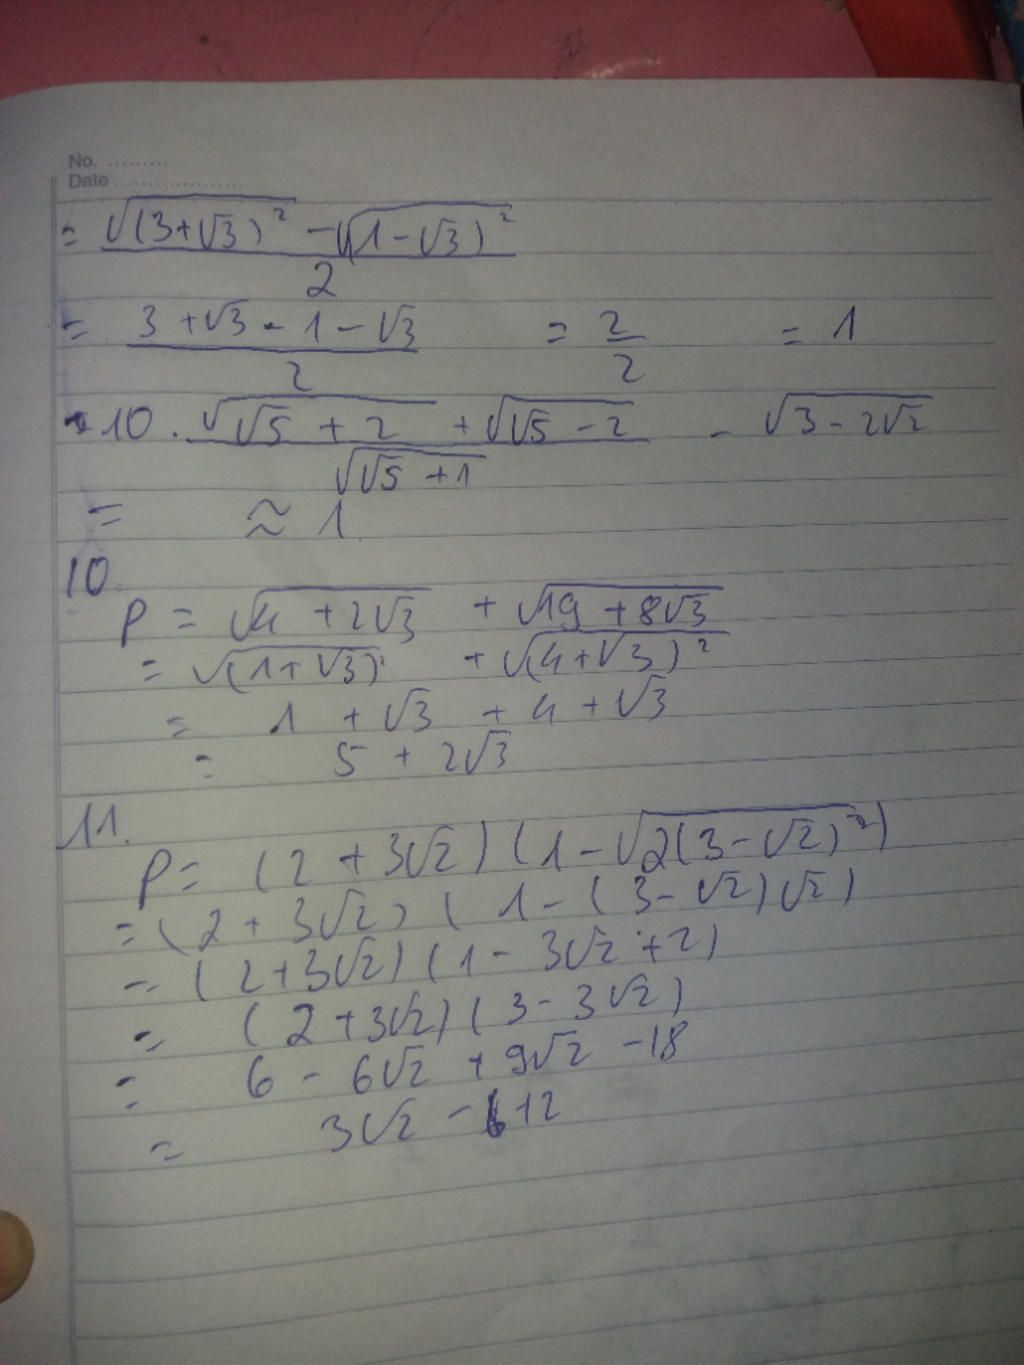 No. .........
Date ....................
= (√((3+√3)²) - √((1-√3)²)) / 2
= (3+√3 - 1 - √3) / 2 = 2/2 = 1
10. (√(√5 + 2) + √(√5 - 2)) / √(√5 + 1) - √(3 - 2√2)
= ≈ 1
10.
P = √(4 + 2√3) + √(19 + 8√3)
= √((1+√3)²) + √((4+√3)²)
= 1 + √3 + 4 + √3
= 5 + 2√3
11.
P = (2 + 3√2) (1 - √(2(3-√2)²))
= (2 + 3√2) (1 - (3-√2)√2)
= (2+3√2) (1 - 3√2 + 2)
= (2+3√2) (3 - 3√2)
= 6 - 6√2 + 9√2 - 18
= 3√2 - 12